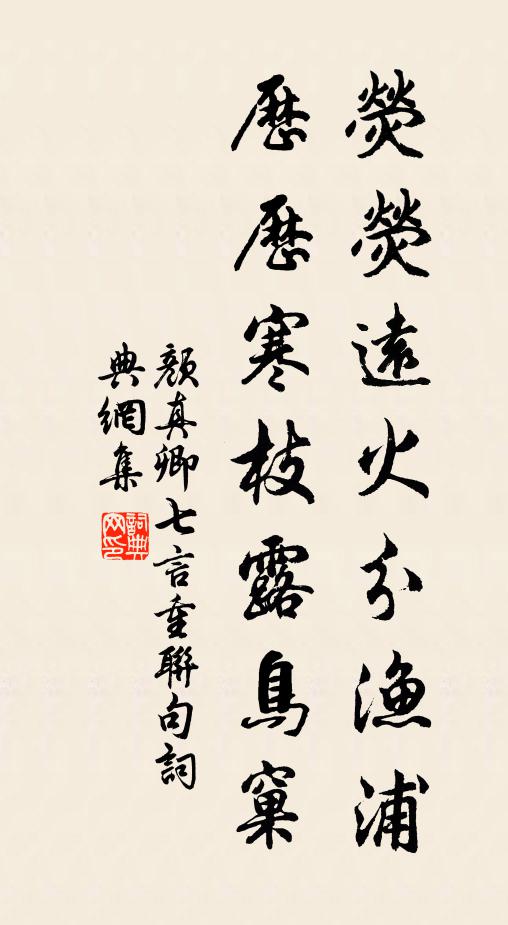 熒熒遠火分漁浦
歷歷寒枝露鳥窠
顏真卿七言重聯句詞
典網集
詞典網印